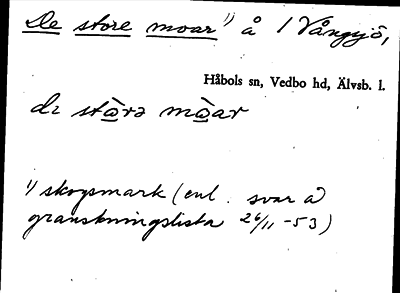 De store moar ¹⁾ å / Vångsjö,
Håbols sn, Vedbo hd, Älvsb. l.
¹⁾ skogsmark (enl. svar å
granskningslista 26/11 -53)